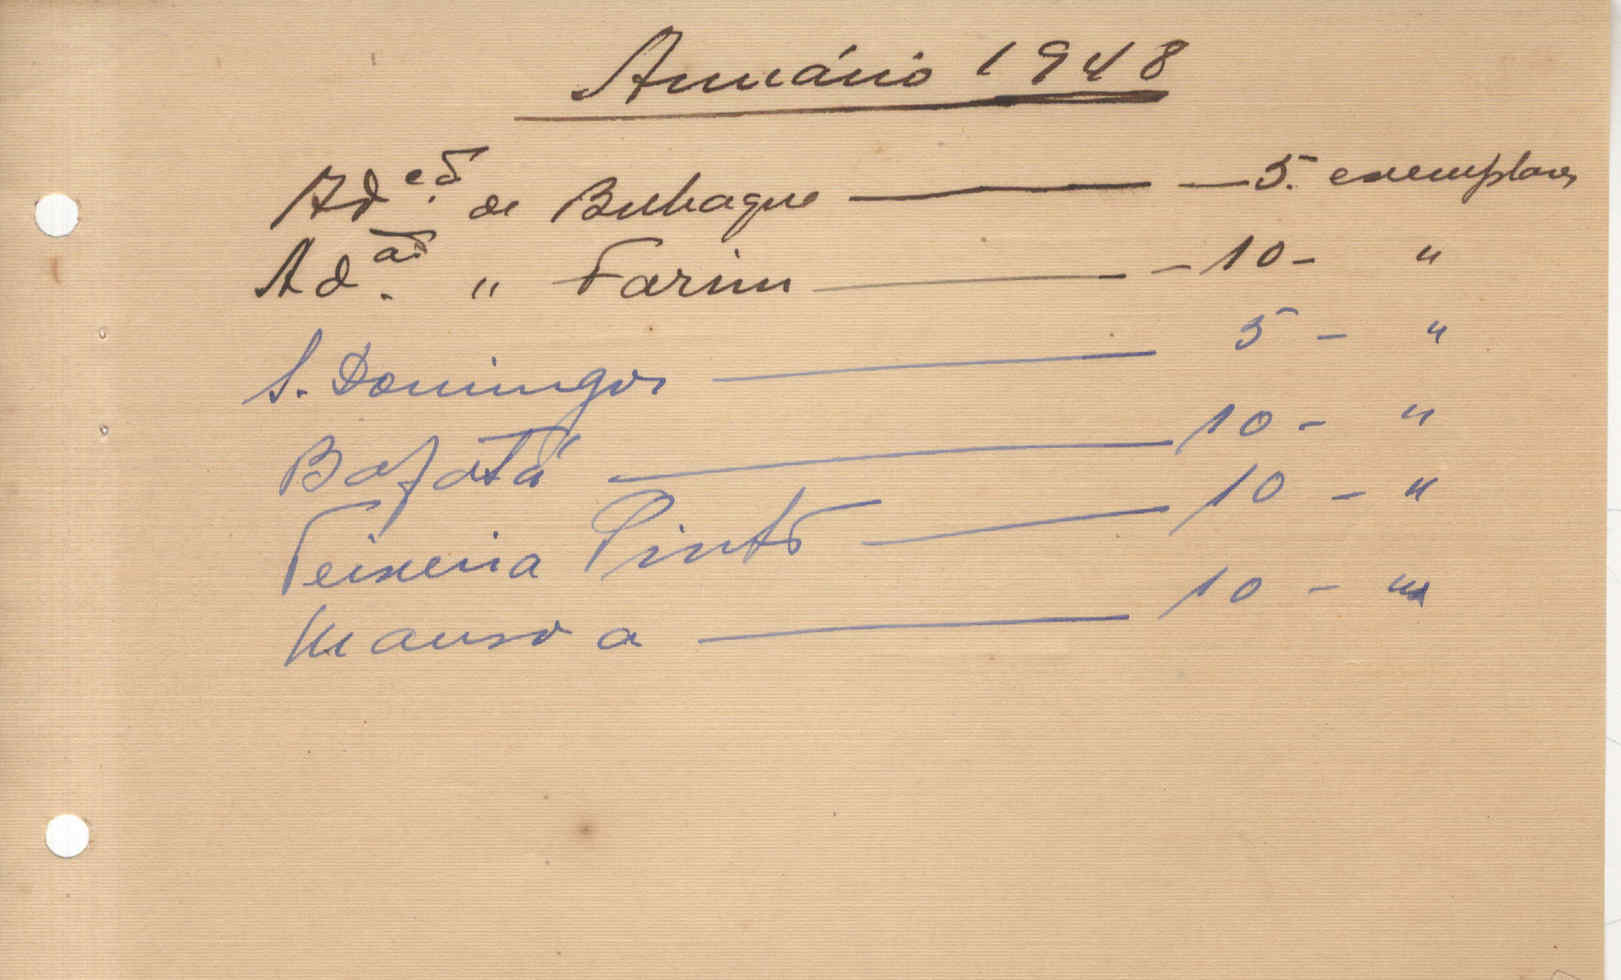 Anuário 1948
Ad.ed de Bubaque — 5. exemplares
Ad.ad " Farim — 10 - "
S. Domingos — 5 - "
Bafatá — 10 - "
Teixeira Pinto — 10 - "
Mansoa — 10 - "